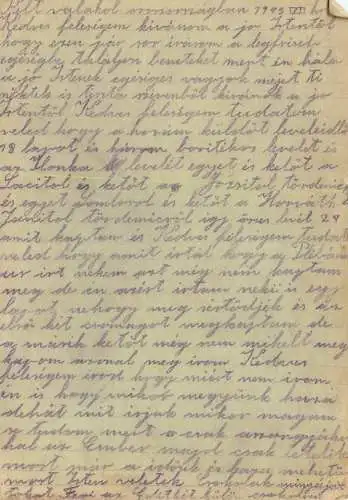 Kelt valahol oroszországban 1943 VII
Kedves feleségem kivánom a jo Istentöl
hogy ezen pár sor irásom a legfrisebb
egéségbe talájon beneteket mert én hála
a jo Istenek egéséges vagyok mejet ti
nektek is tiszta szivemböl kivánok a jo
Istentöl Kedves feleségem tudatom
veled hogy a hozám küldöt leveleidböl
18 lapot és három boritékos levelet és
az Ilonka levelét egyet és kettöt a
Lacitol és kettöt a Jozsitol
és egyet sándorol és kettöt a Horváth
igy öszvevéil 29
amit kaptam és Kedves feleségem tudatom
veled hogy amit irtál hogy a
ser irt nekem azt még nem kaptam
meg de én azért irtam neki is egy
lapot nehogy meg sértödjék és az
elsö két csomagot megkaptam de
a másik kettöt még nem mihelt meg
kapom azonal meg irom Kedves
feleségem irod hogy miért nem irom
én is hogy mikor megyünk haza
dehát mit irjak mikor magam
se tudom mert a csak
hal az Ember majd csak
mert már a idök és
mert Isten veletek Csokolak